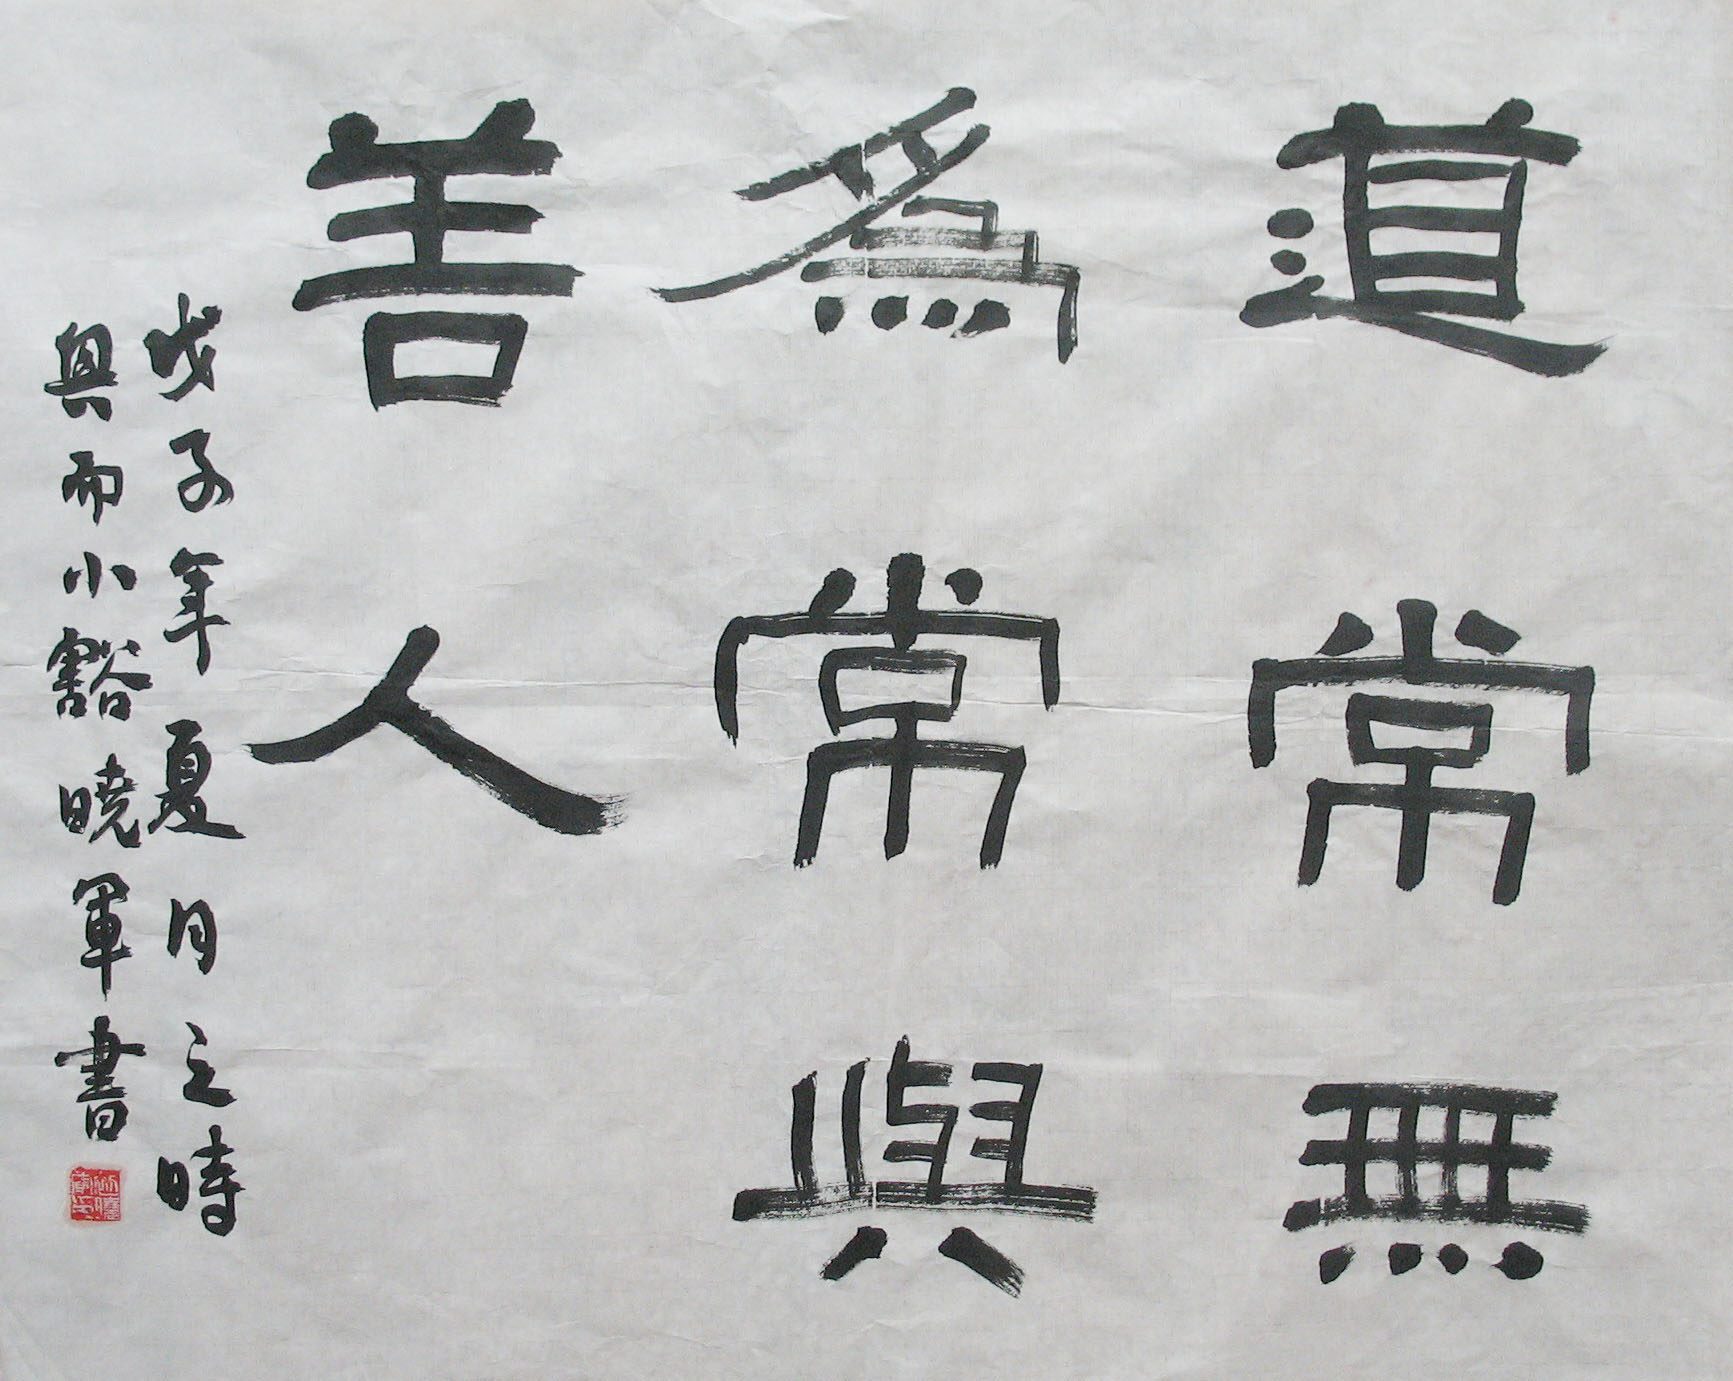 道常無
為常與
善人
戊子年夏月之時
興而小豁曉軍書